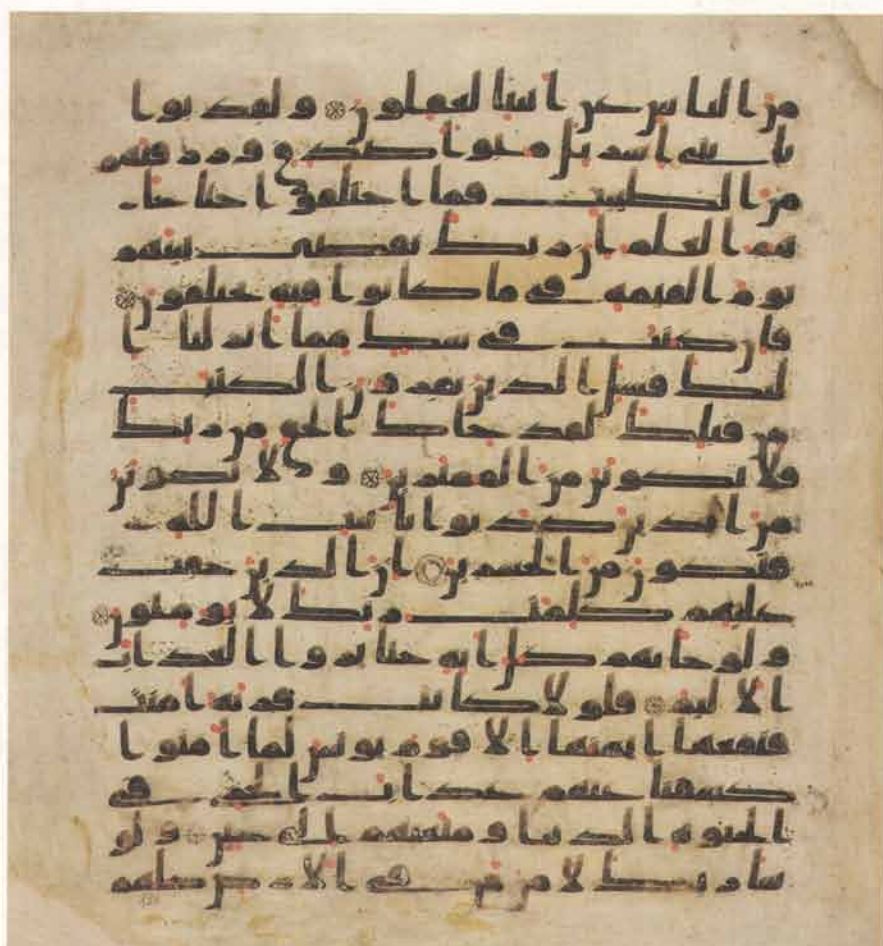 من الناس عن ايتنا لغفلون ۝ ولقد بوا
نا بني اسريل مبوا صدق ورزقنهم
من الطيبت فما اختلفوا حتا جا
هم العلم ان ربك يقضي بينهم
يوم القيمه في ما كانوا فيه يختلفون ۝
فان كنت في شك مما انزلنا ا
ليك فسل الذين يقرون الكتب
من قبلك لقد جاك الحق من ربك
فلا تكونن من الممترين ۝ ولا تكونن
من الذين كذبوا بايت الله
فتكون من الخسرين ۝ ان الذين حقت
عليهم كلمت ربك لا يومنون ۝
ولو جاتهم كل ايه حتا يروا العذاب
الاليم ۝ فلولا كانت قريه امنت
فنفعها ايمنها الا قوم يونس لما امنوا
كشفنا عنهم عذاب الخزي في
الحيوه الدنيا ومتعنهم الى حين ۝ ولو
شا ربك لامن من في الارض كلهم